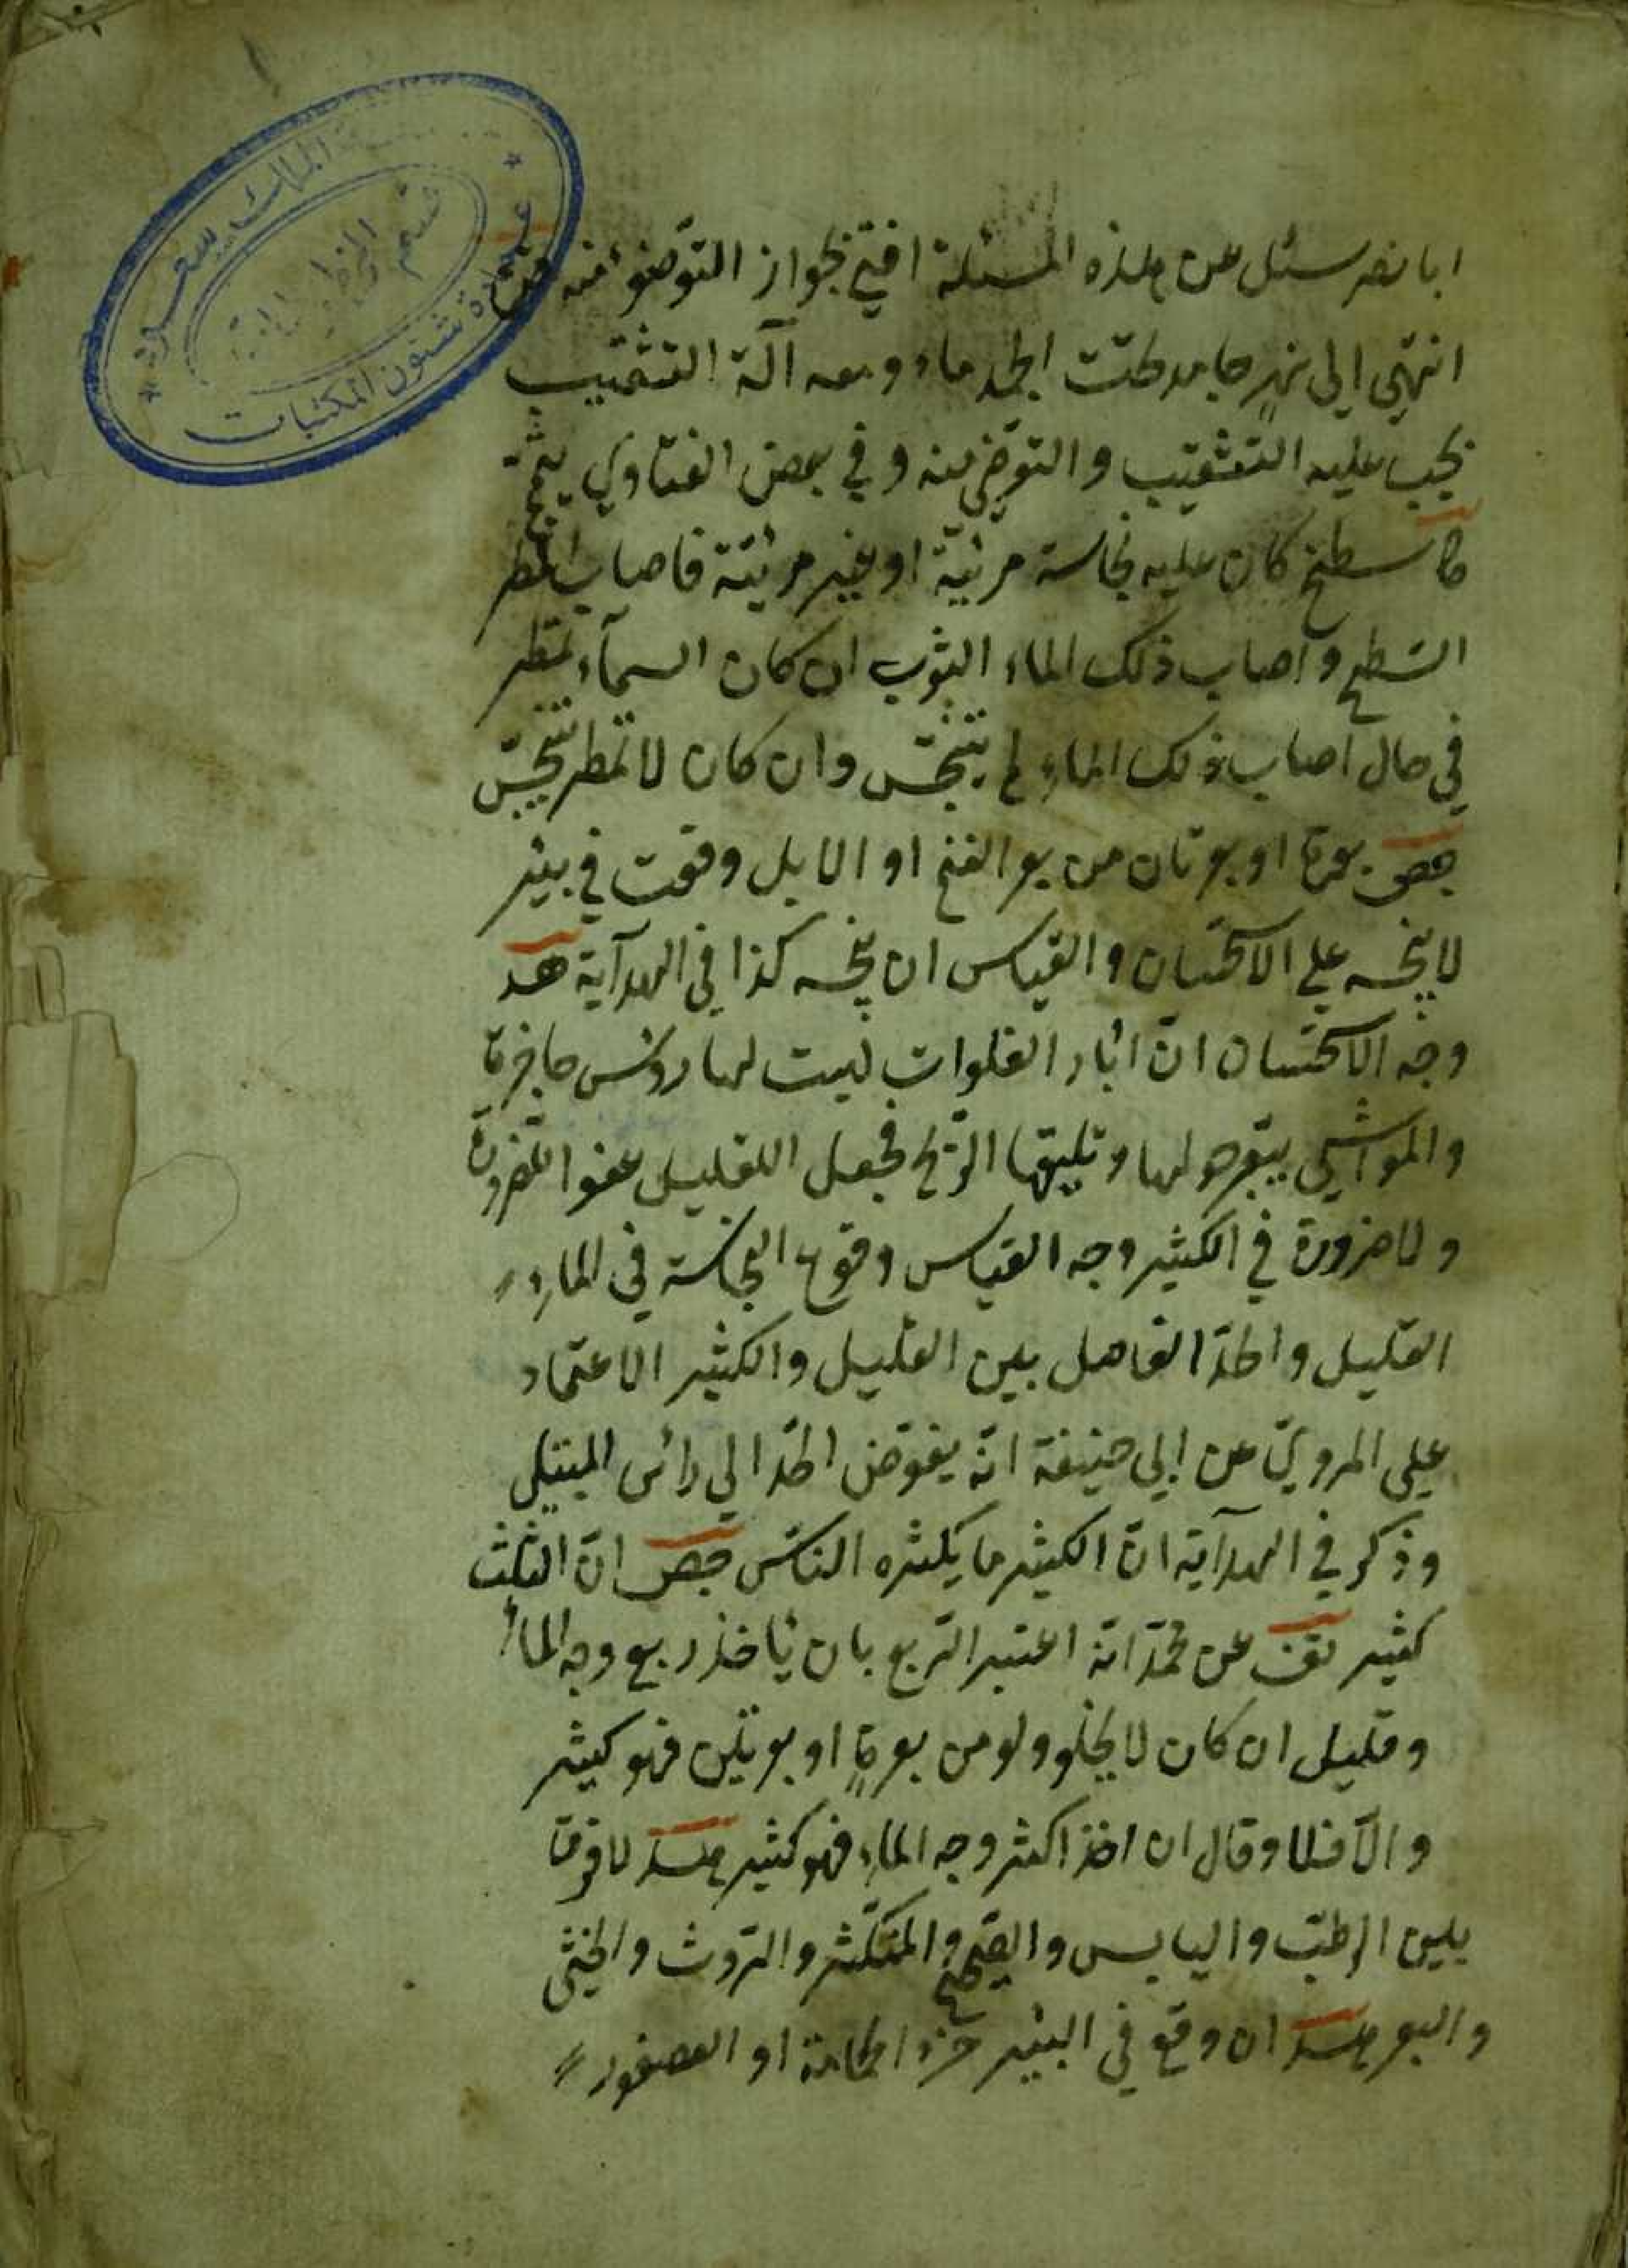 ابا نصر سئل عن هذه المسئلة افتي بجواز التوضؤ منه
انتهي الي نهر جامد تحت الجمد ماء ومعه آلة التثقيب
يجب عليه التثقيب والتوضي منه وفي بعض الفتاوي يتيمم
سطح كان عليه نجاسة مرئية او غير مرئية فاصاب المطر
السطح واصاب ذلك الماء الثوب ان كان السمآء تمطر
في حال اصاب ذلك الماء لم يتنجس وان كان لا تمطر يتنجس
جص بعرة او بعرتان من بعر الغنم او الابل وقعت في بئير
لا ينجسه علي الاستحسان والقياس ان ينجسه كذا في الهدآية هد
وجه الاستحسان ان ابار الفلوات ليست لها رؤس حاجزة
والمواشي يتبعر حولها وتلقيها الريح فجعل القليل عفوا للضرورة
ولا ضرورة في الكثير وجه القياس وقوع النجاسة في الماء
القليل والحد الفاصل بين القليل والكثير الاعتماد
علي المروي عن ابي حنيفة انه يفوض الحد الي رائ المبتلي
وذكر في الهدآية ان الكثير ما يكثره الناس جص ان الثلث
كثير عن محمد انه اعتبر الربع بان ياخذ ربع وجه الماء
وقليل ان كان لا يخلو دلو من بعرة او بعرتين فهو كثير
والا فلا وقال ان اخذ اكثر وجه الماء فهو كثير هد لا فرق
بين الرطب واليابس والصحيح والمنكسر والروث والخثي
والبعر هد ان وقع في البئير خرء الحمامة او العصفور
عمادة شئون المكتبات